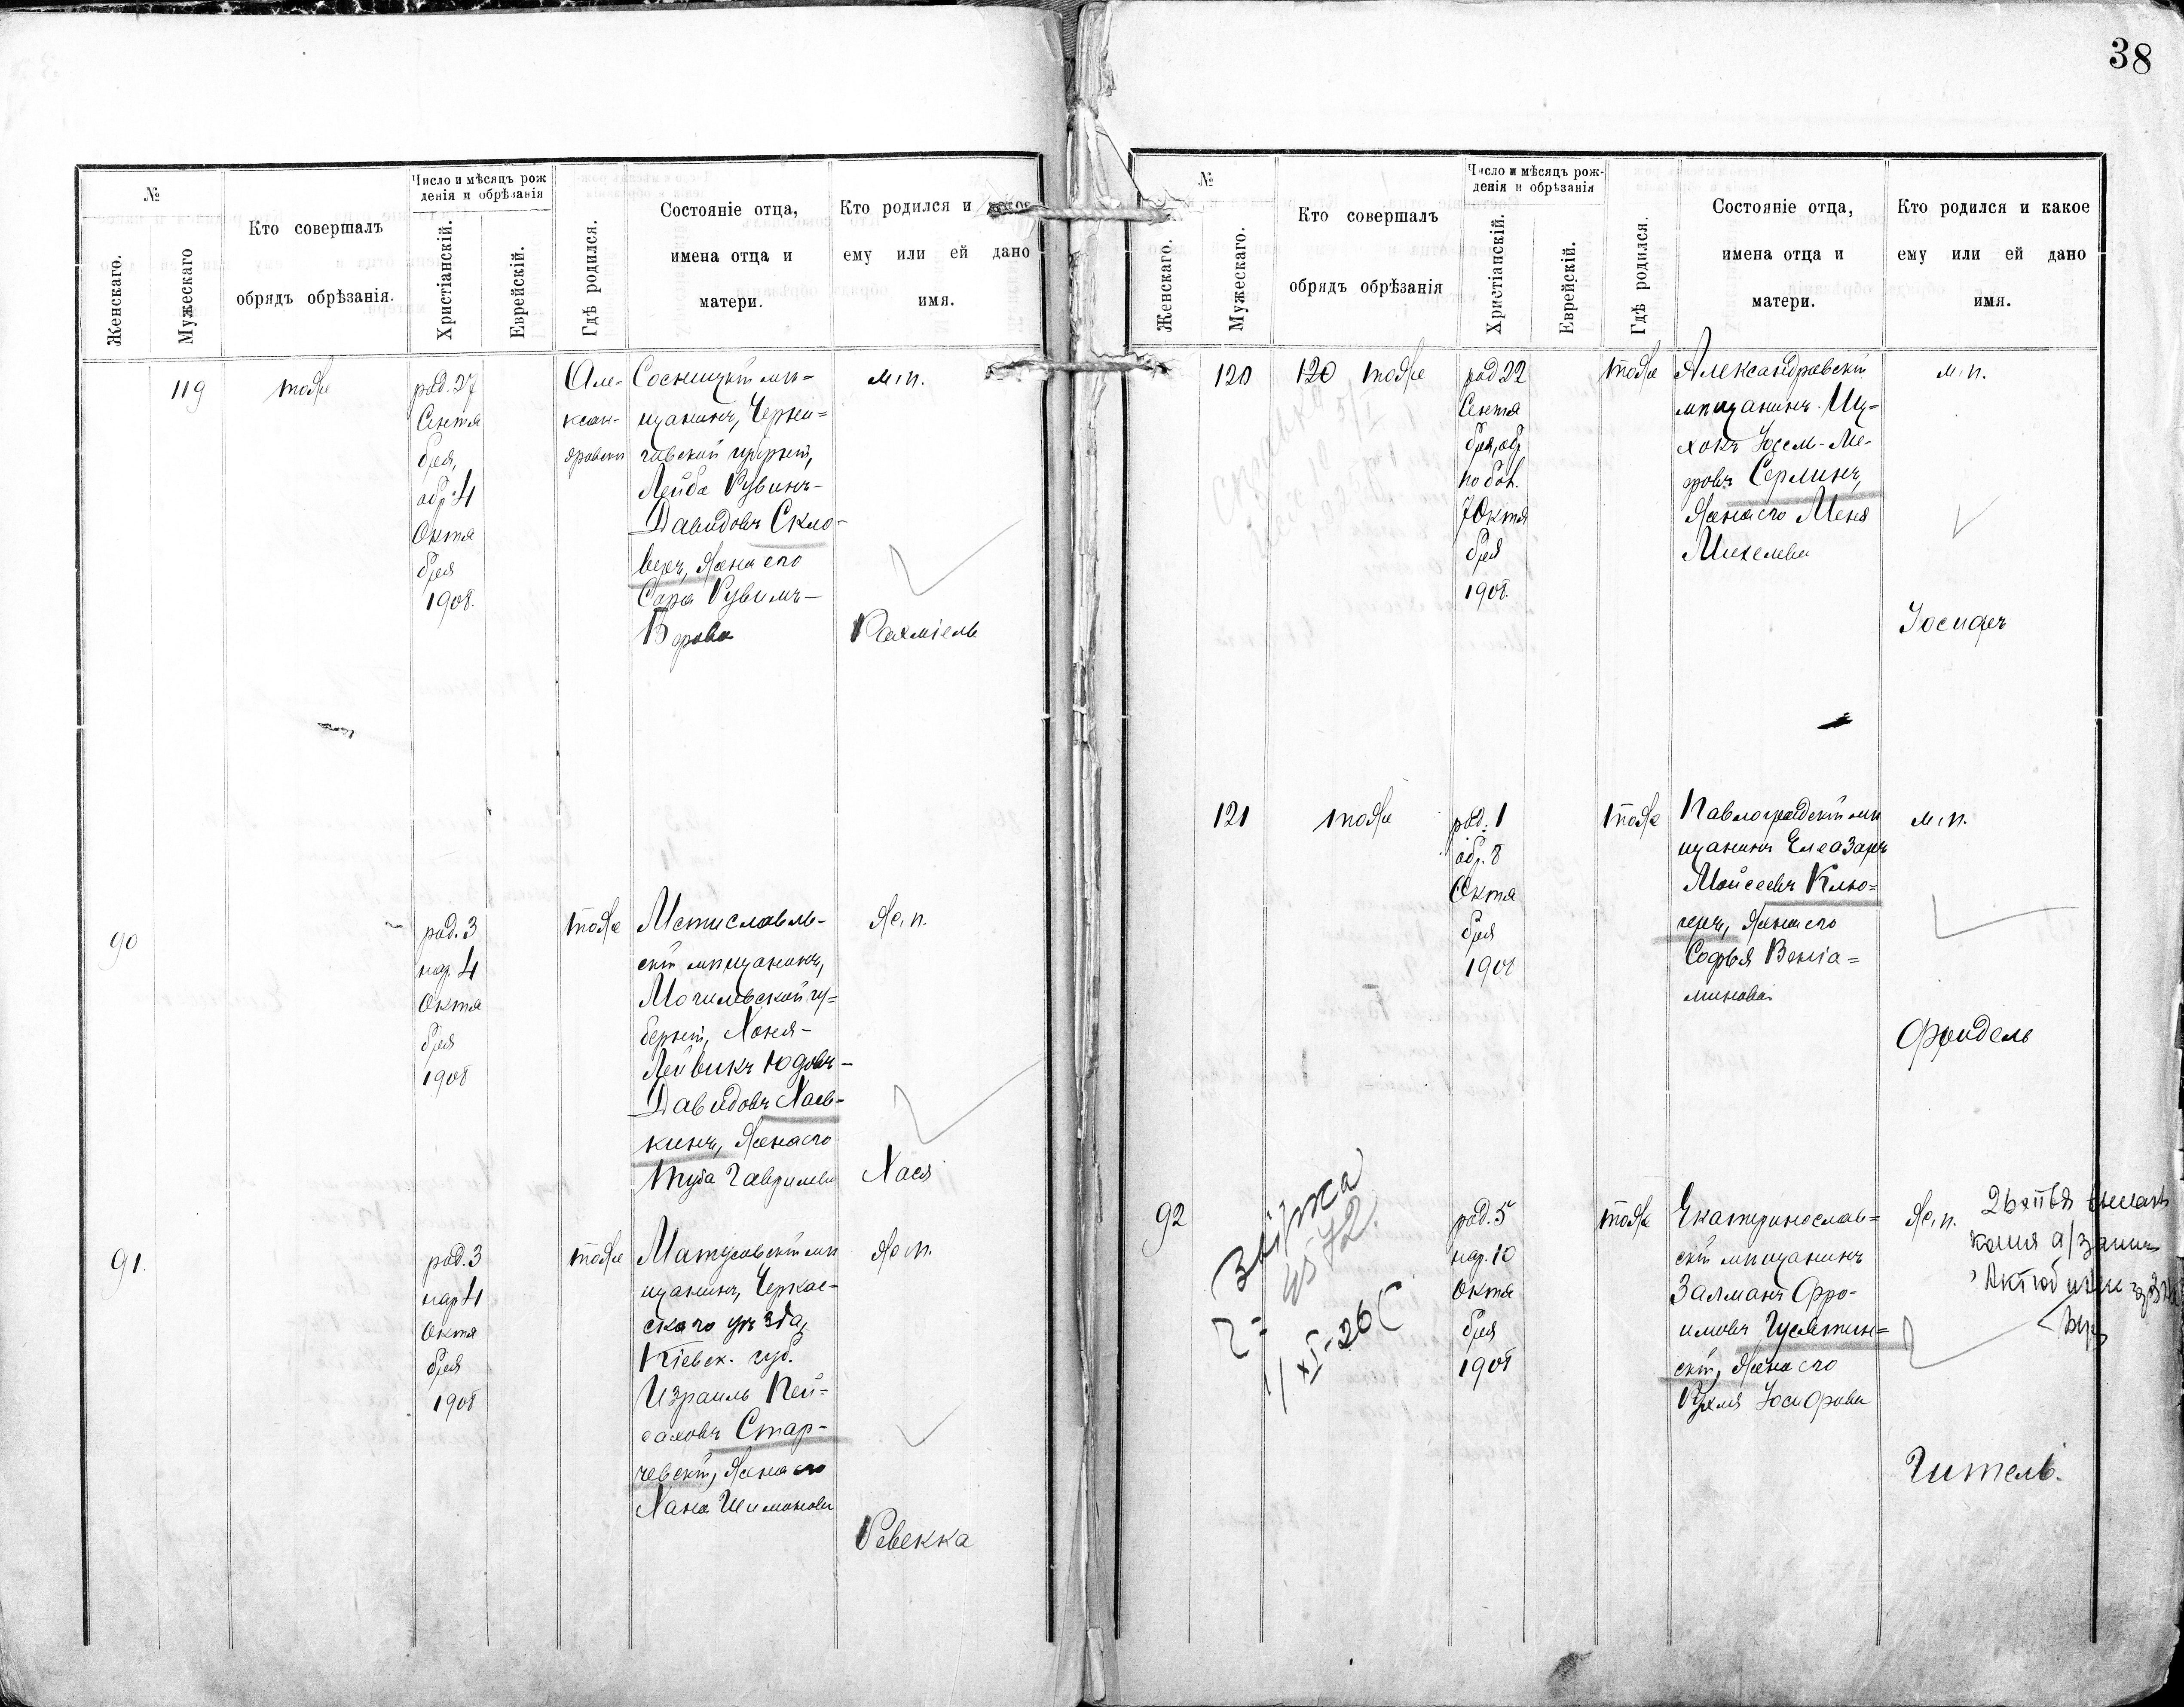 38
№
Женскаго.
Мужескаго
Кто совершалъ
обрядъ обрѣзанія.
Число и мѣсяцъ рож
денія и обрѣзанія
Христіанскій.
Еврейскій.
Гдѣ родился.
Состояніе отца,
имена отца и
матери.
Кто родился и
ему или ей дано
имя.
119
тоже
род. 27
Сентя
бря,
обр. 4
Октя
бря
1908.
Але-
ксан-
дровски
Сосницкій мѣ=
щанинъ, Черни=
говской губерніи,
Лейба Рувинъ-
Давидовъ Скло-
веръ, жена его
Сара Рувимъ-
Берова
м. п.
Рахміель
90
род. 3
нар. 4
Октя
бря
1908
тоже
Мстиславль-
скій мѣщанинъ,
Могилевской гу=
берніи, Хоня-
Лейвикъ Юдовъ-
Давидовъ Хась-
кинъ, жена его
Туба Гаврилева
Ж. п.
Хася
91.
род. 3
нар 4
Октя
бря
1908
тоже
Матусовскій мѣ
щанинъ, Черкас-
скаго уѣзда,
Кіевск. губ.
Израиль Пей=
саховъ Стар-
чевскій, жена его
Хана Шимонова
Ж. п.
Ревекка
№
Женскаго.
Мужескаго.
Кто совершалъ
обрядъ обрѣзанія
Число и мѣсяцъ рож-
денія и обрѣзанія
Христіанскій.
Еврейскій.
Гдѣ родился.
Состояніе отца,
имена отца и
матери.
Кто родился и какое
ему или ей дано
имя.
120
120 тоже
род 22
Сентя
бря, обр
по бол.
7 Октя
бря
1908.
тоже
Александровскій
мѣщанинъ Иц-
хокъ Іосел-Ме-
ровъ Серлинъ,
жена его Меня
Михелева
м. п.
Іосифъ
121
тоже
род. 1
обр. 8
Октя
бря
1908
тоже
Павлоградскій мѣ
щанинъ Елеазаръ
Мойсеевъ Клю=
черъ, жена его
Софья Веніа=
минова
м. п.
Фридель
92
род. 5
нар. 10
Октя
бря
1908
тоже
Екатеринослав=
скій мѣщанинъ
Залманъ Фро-
имовъ Гусятин=
скій, жена его
Рухля Іосифова
Ж. п.
копия
Гитель.